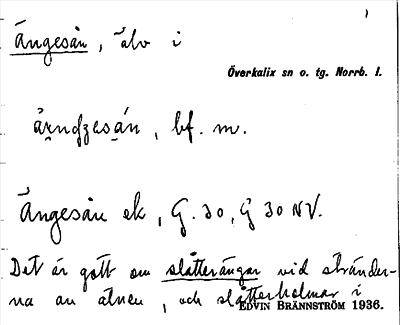 Ängesån, älv i
Överkalix sn o. tg. Norrb. l.
bf. m.
Ängesån ek, G. 30, G 30 NV.
Det är gott om slåtterängar vid stränder-
na av älven, och slåtterholmar i
EDVIN BRÄNNSTRÖM 1936.